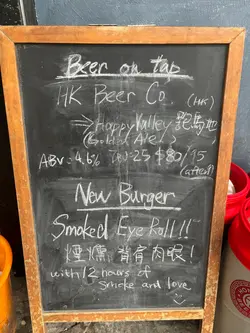 Beer on tap
HK Beer Co.
(HK)
⇒ Happy Valley 跑馬地
(Gold Ale)
ABV = 4.6% $80/
New Burger
Smoked Eye Roll!!
煙燻 肉眼!
with 12 hours of
smoke and love